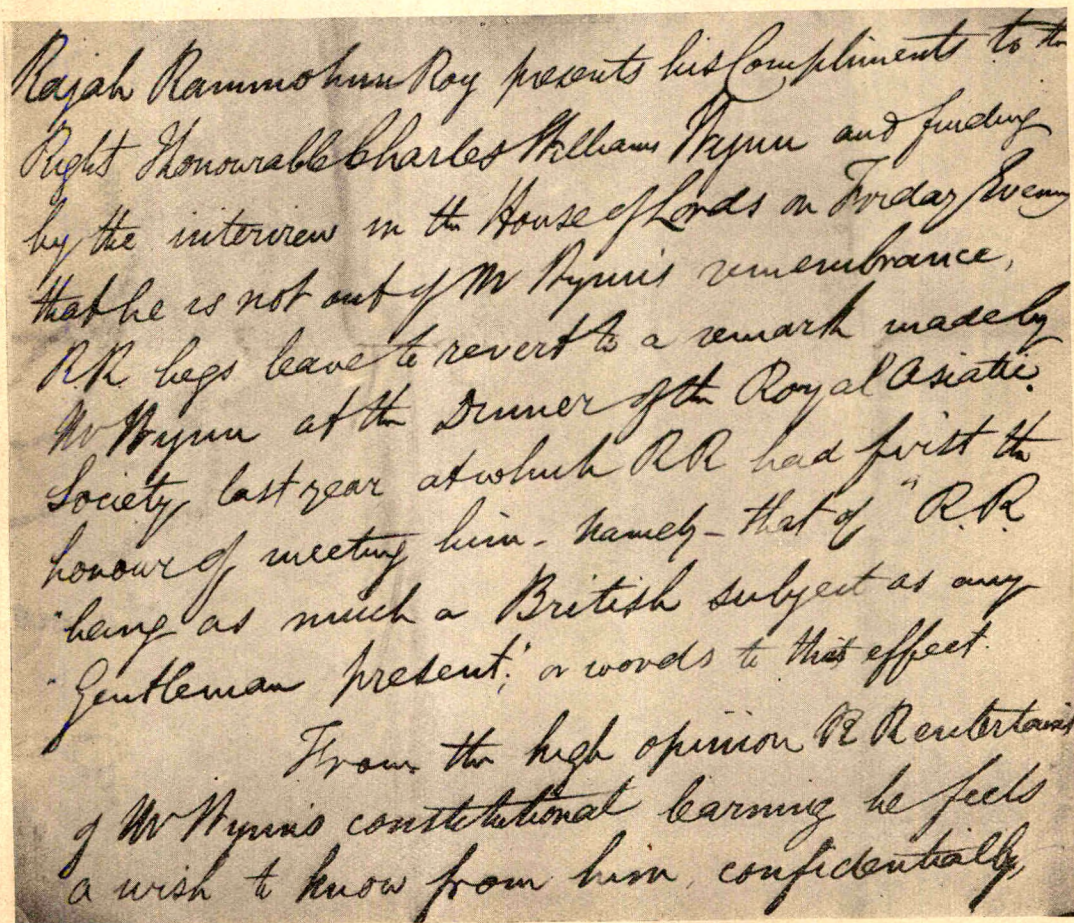 Rajah Rammohun Roy presents his Compliments to the
Right Honourable Charles Williams Wynn and finding
by the interview in the House of Lords on Friday Evening
that he is not out of Mr Wynn's remembrance,
R.R. begs leave to revert to a remark made by
Mr Wynn at the Dinner of the Royal Asiatic
Society last year at which RR had first the
honour of meeting him - namely - that of "R.R.
"being as much a British subject as any
"Gentleman present," or words to this effect.
From the high opinion RR entertains
of Mr Wynn's constitutional learning he feels
a wish to know from him, confidentially,